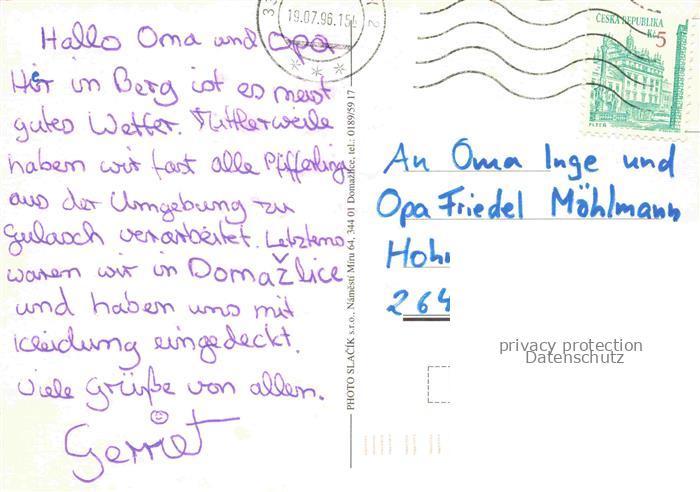 Hallo Oma und Opa
Hier in Berg ist es meist
gutes Wetter. Mittlerweile
habern wir fast alle Pfifferlinge
aus der Umgebung zu
Gulasch verarbeitet. Letztens
waren wir in Domažlice
und haben uns mit
Kleidung eingedeckt.
Viele Grüße von allen.
Gerriet
PHOTO SLAČÍK s.r.o., Náměstí Míru 64, 344 01 Domažlice, tel.: 0189/59 17
19.07.96.15
ČESKÁ REPUBLIKA
Kč 5
PLZEŇ
An Oma Inge und
Opa Friedel Möhlmann
Hoh
264
privacy protection
Datenschutz